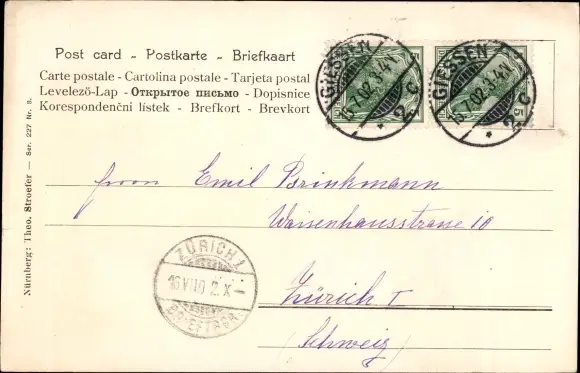 Post card - Postkarte - Briefkaart
Carte postale - Cartolina postale - Tarjeta postal
Levelező-Lap - Открытое письмо - Dopisnice
Korespondenční lístek - Brefkort - Brevkort
GIESSEN
15.7.02.3-4N
* 2 C
GIESSEN
15.7.02.3-4N
* 2 C
5
Herrn Emil Brinkmann
Waisenhausstrasse 10
Zürich I
(Schweiz)
ZÜRICH 1
16.VII.02.X-
BRIEFTRÄG.
Nürnberg: Theo. Stroefer — Ser. 227 Nr. 8.